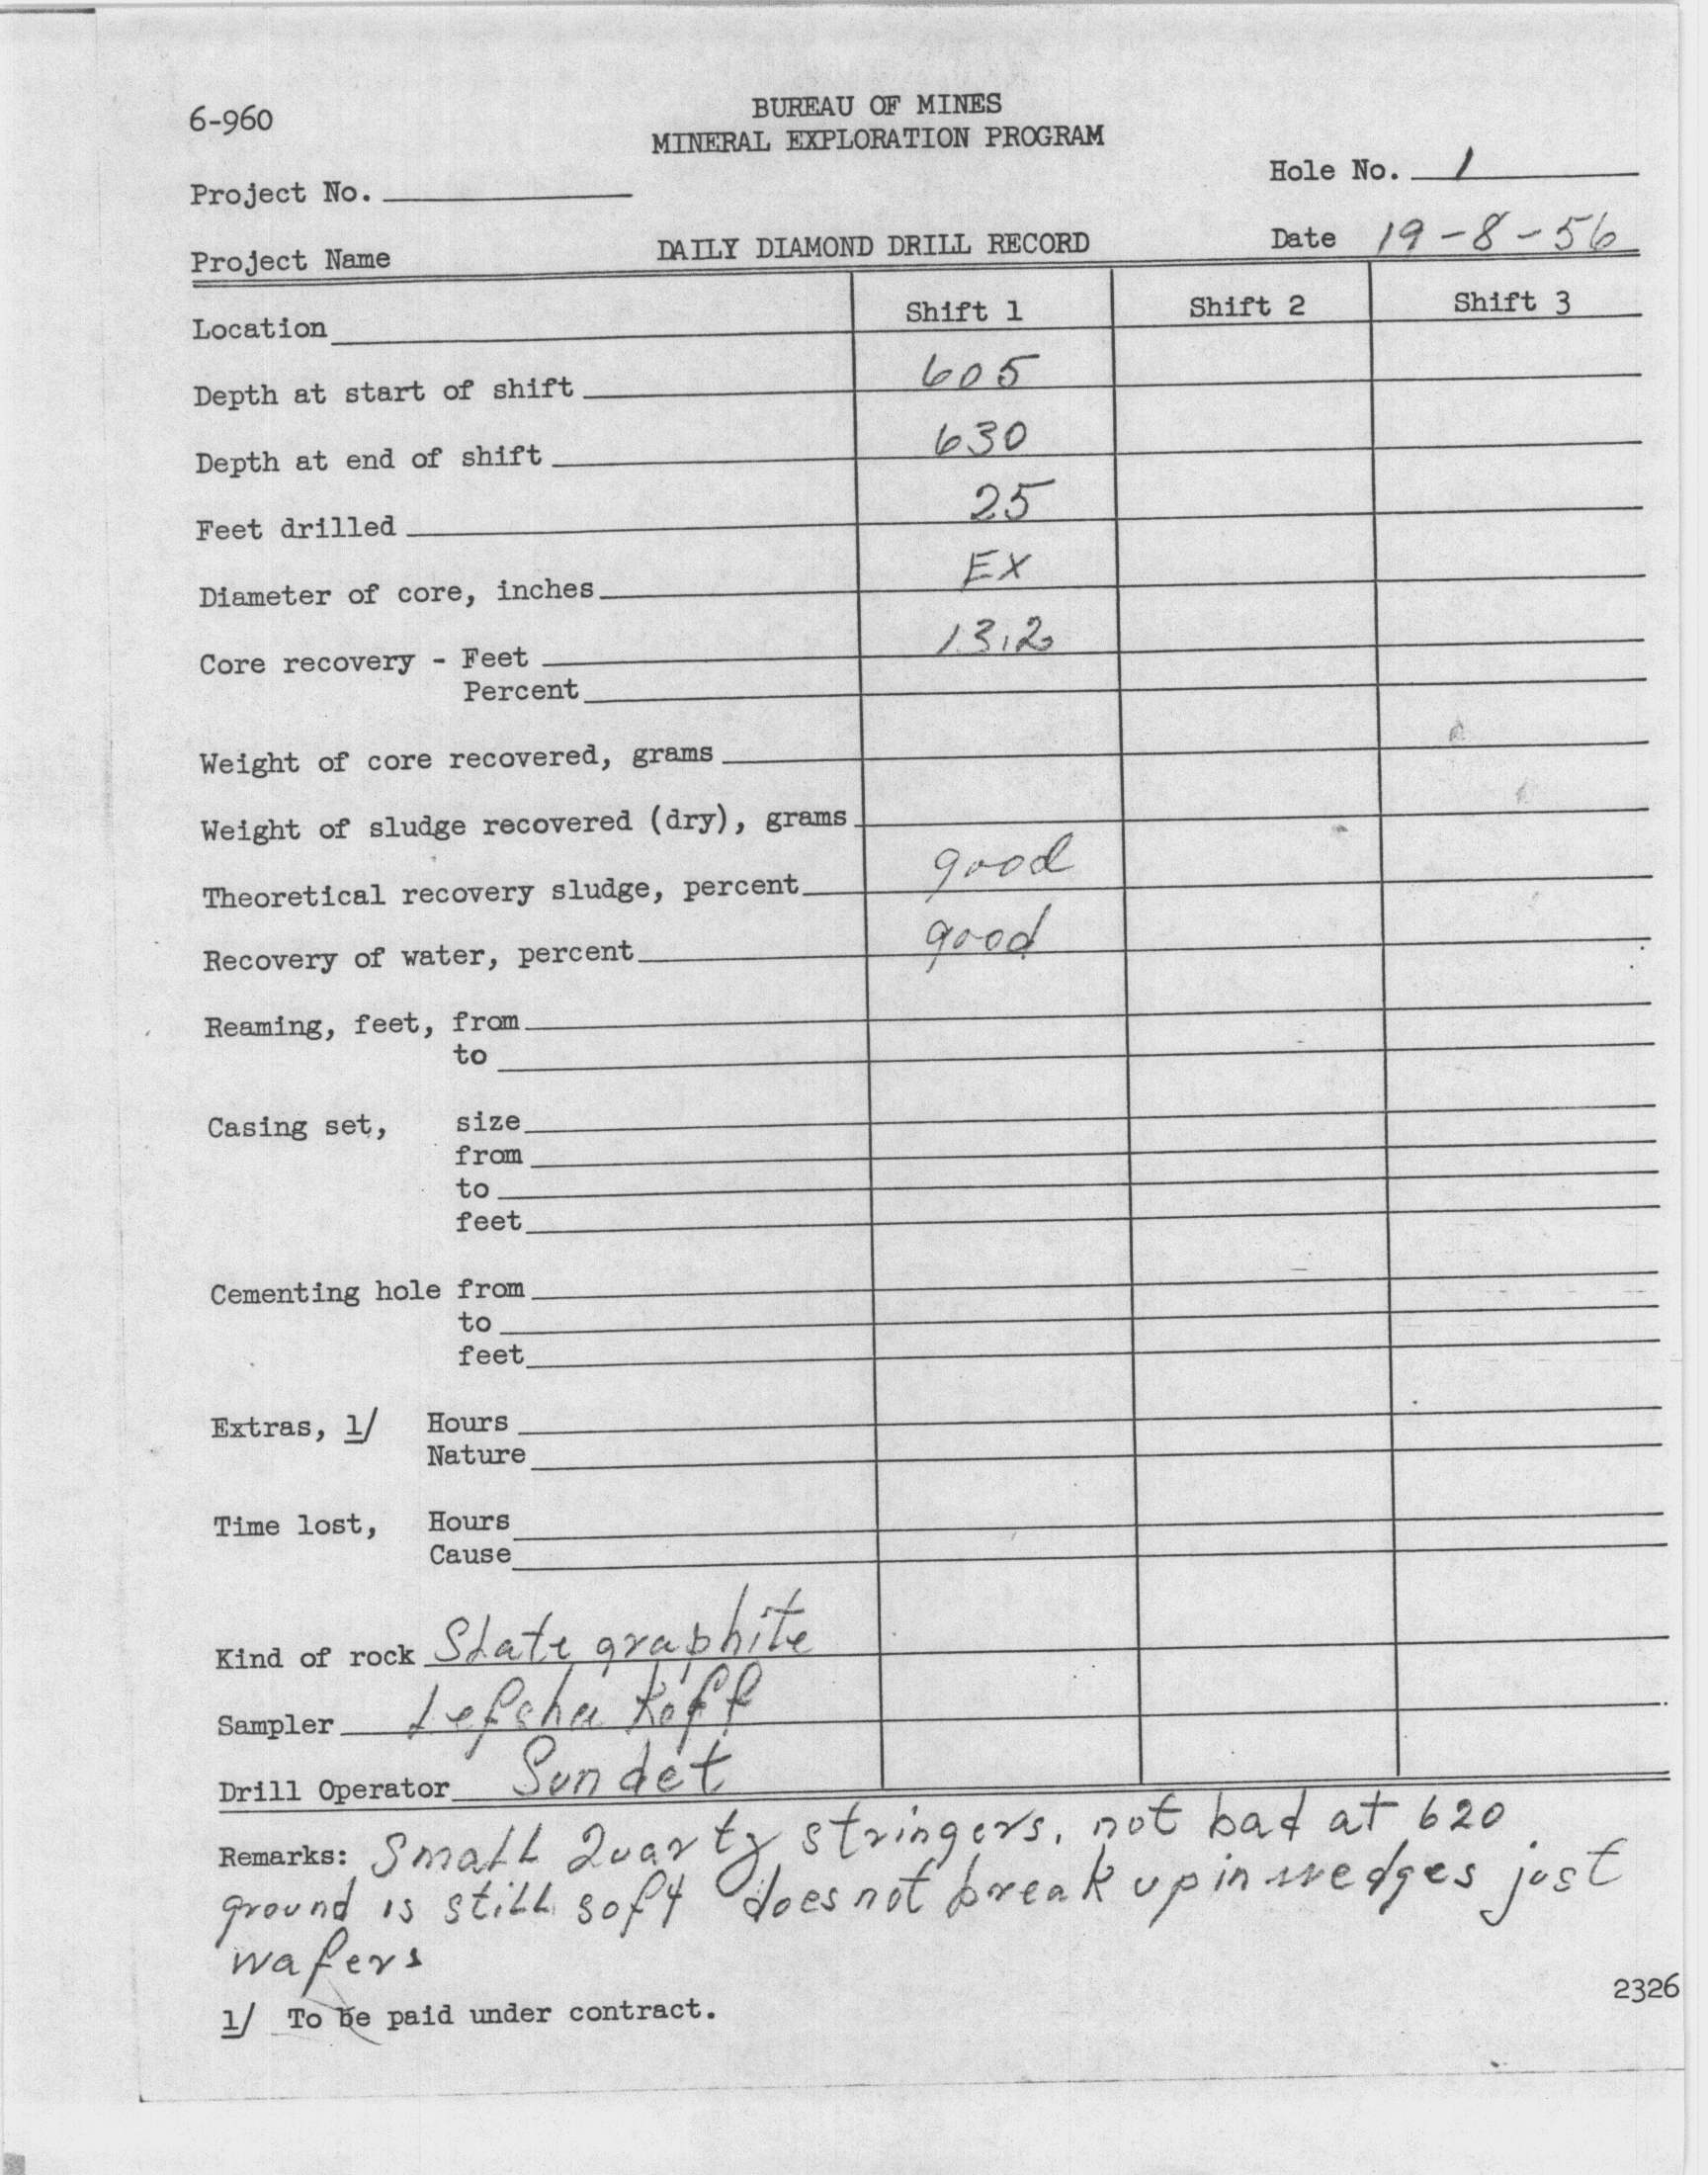 6-960
BUREAU OF MINES
MINERAL EXPLORATION PROGRAM
Hole No. 1
Project No.
Project Name
DAILY DIAMOND DRILL RECORD
Date 19-8-56
Location Shift 1 Shift 2 Shift 3
Depth at start of shift 605
Depth at end of shift 630
Feet drilled 25
Diameter of core, inches EX
Core recovery - Feet 13.2
Percent
Weight of core recovered, grams
Weight of sludge recovered (dry), grams
Theoretical recovery sludge, percent good
Recovery of water, percent good
Reaming, feet, from
to
Casing set, size
from
to
feet
Cementing hole from
to
feet
Extras, 1/ Hours
Nature
Time lost, Hours
Cause
Kind of rock Slate graphite
Sampler Lefsha Koff
Drill Operator Sundet
Remarks: Small Quartz stringers, not bad at 620
ground is still soft does not break up in wedges just
wafers
1/ To be paid under contract.
2326